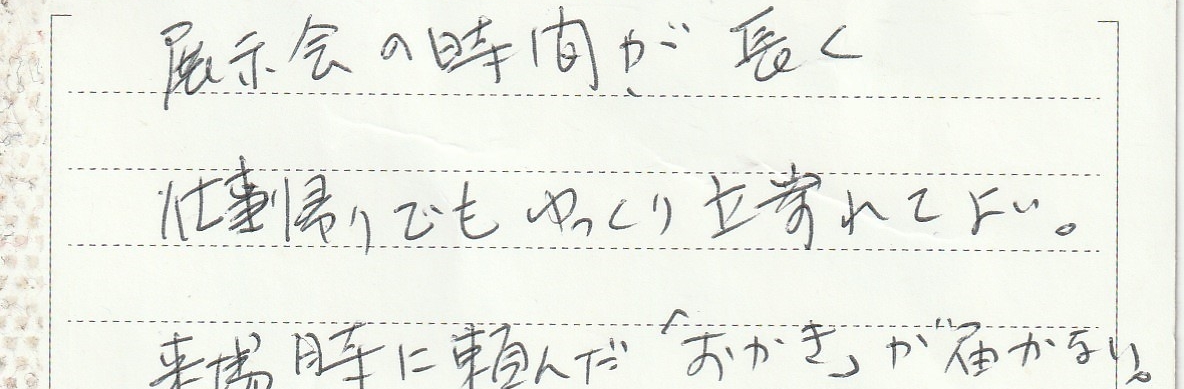 展示会の時間が長く
仕事帰りでもゆっくり立寄れてよい。
来場時に頼んだ「おかき」が届かない。